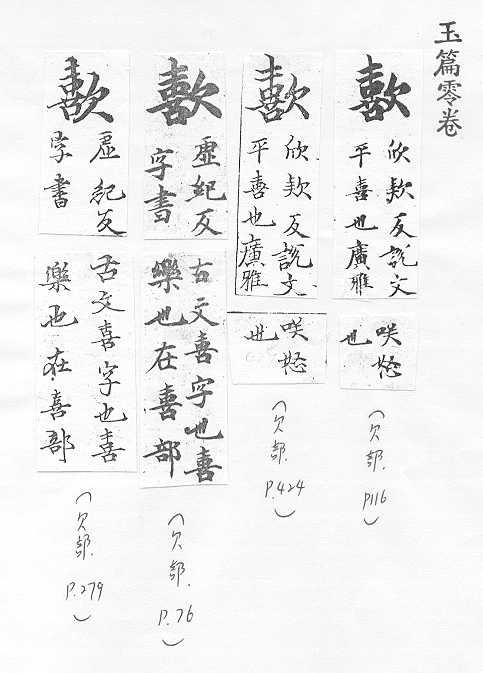 玉篇零卷
歖
欣欵反說文
平喜也廣雅
咲
也
（欠部. P116）
歖
欣欵反說文
平喜也廣雅
咲
也
（欠部. P.424）
歖
虛紀反
字書
古文喜字也喜
樂也在喜部
（欠部. P.76）
歖
虛紀反
字書
古文喜字也喜
樂也在喜部
（欠部. P.279）